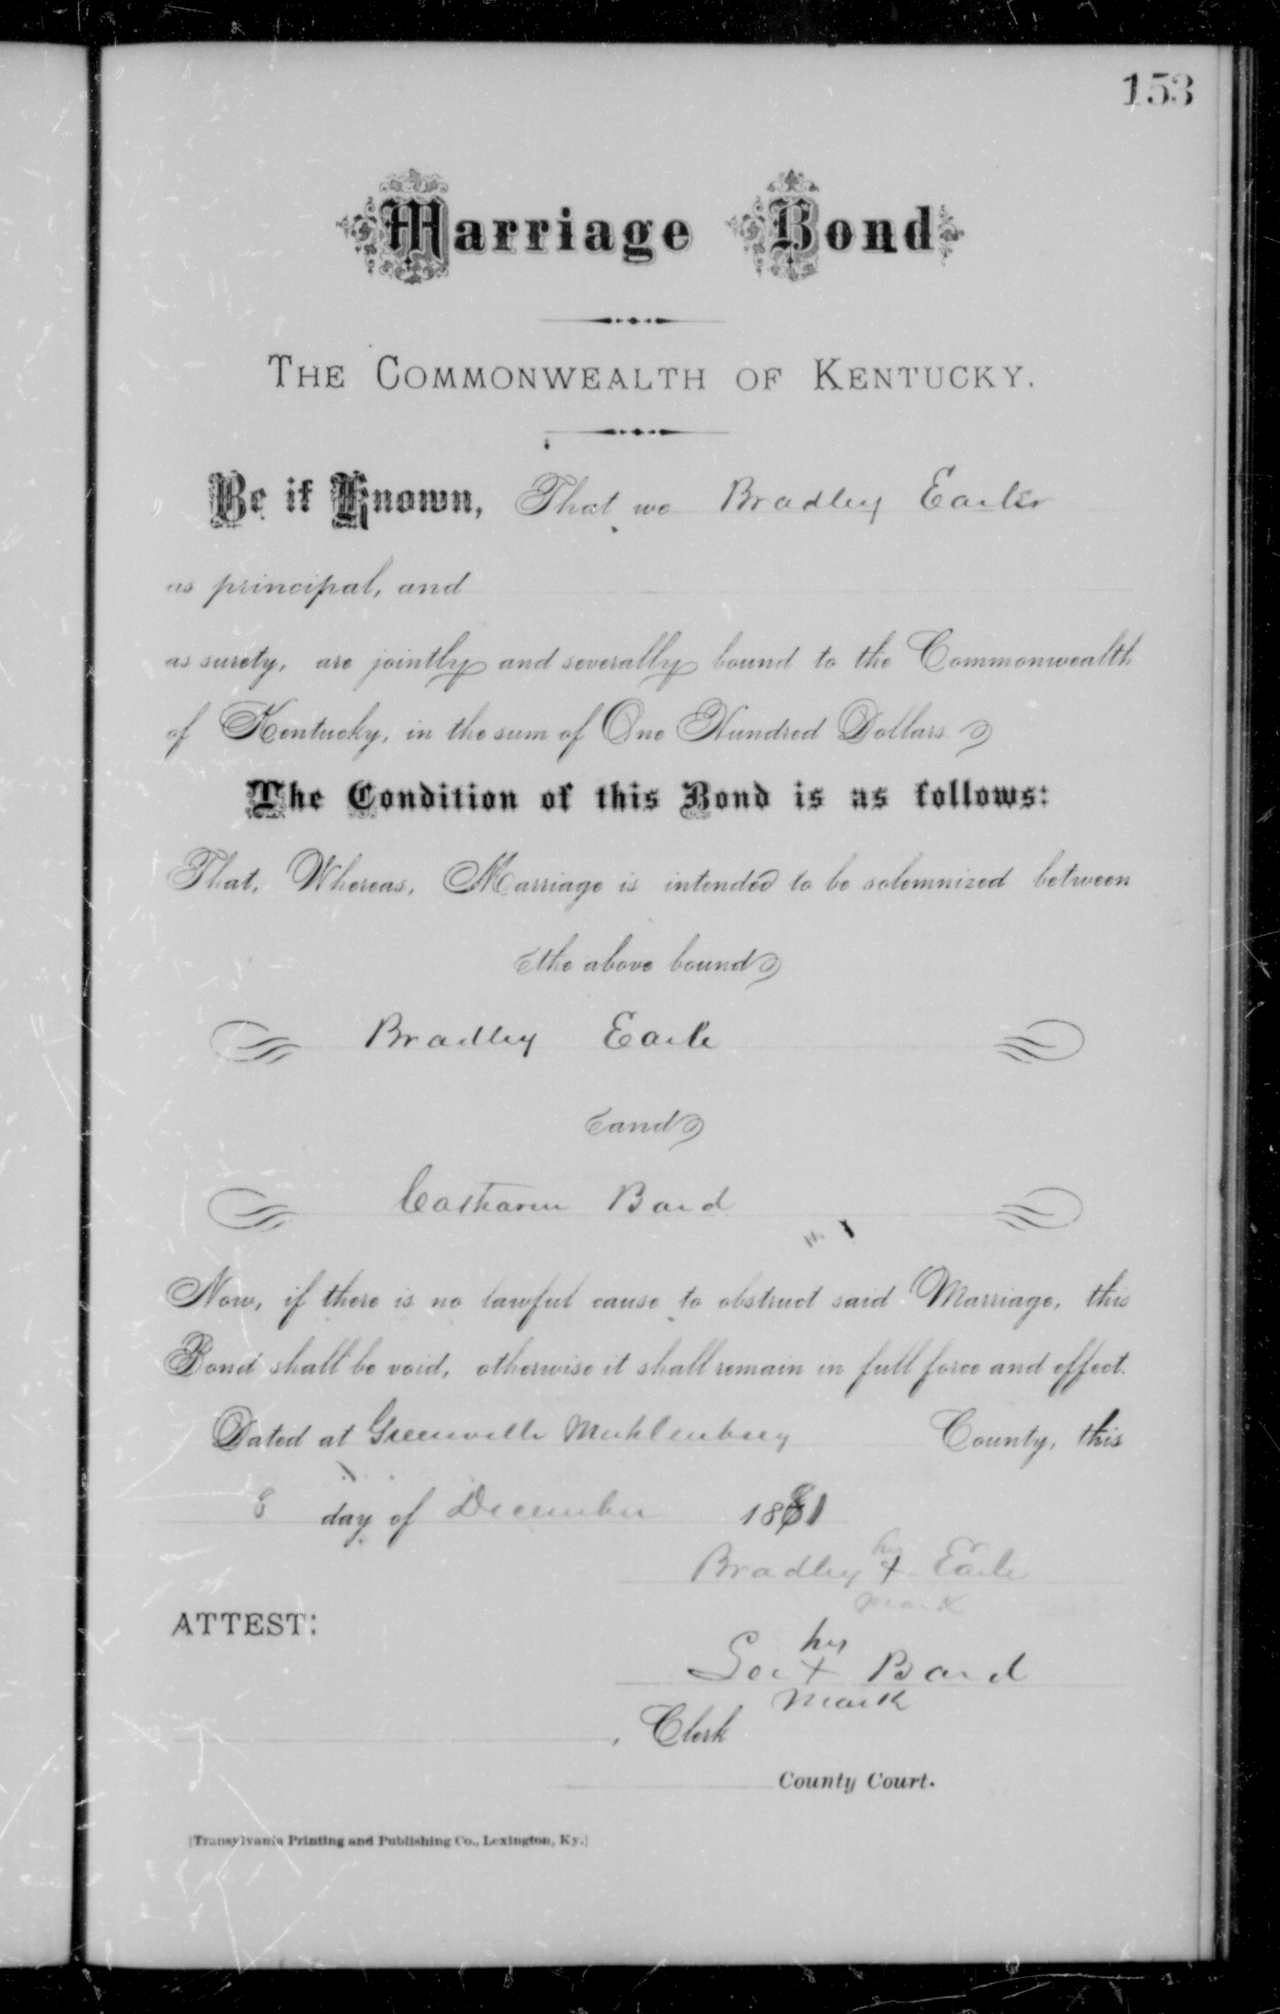 153
Marriage Bond
THE COMMONWEALTH OF KENTUCKY.
Be it Known, That we Bradley Earle
as principal, and
as surety, are jointly and severally bound to the Commonwealth
of Kentucky, in the sum of One Hundred Dollars.
The Condition of this Bond is as follows:
That, Whereas, Marriage is intended to be solemnized between
the above bound
Bradley Earle
and
Catharine Bard
Now, if there is no lawful cause to obstruct said Marriage, this
Bond shall be void, otherwise it shall remain in full force and effect.
Dated at Greenville Muhlenburg County, this
8 day of December 1881
his
Bradley + Earle
mark
ATTEST:
his
+ Bard
mark
, Clerk
County Court.
[Transylvania Printing and Publishing Co., Lexington, Ky.]